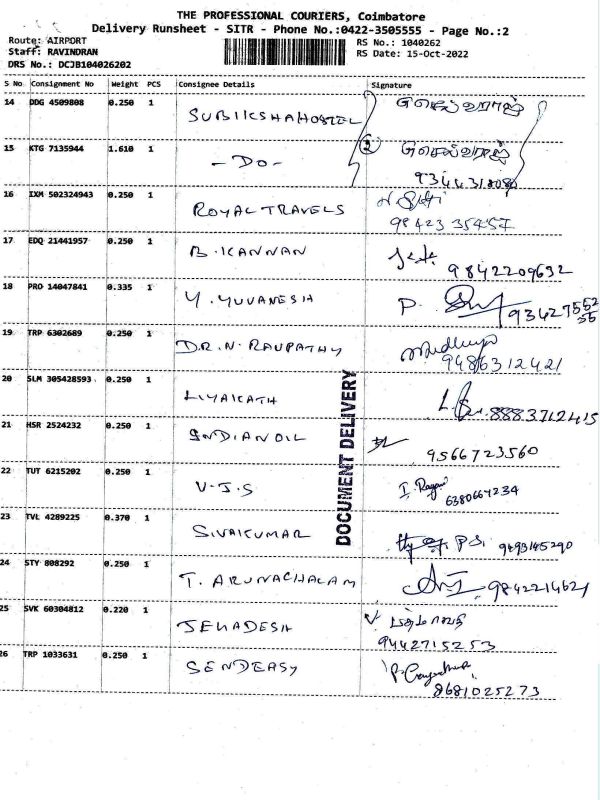 THE PROFESSIONAL COURIERS, Coimbatore
Delivery Runsheet - SITR - Phone No.:0422-3505555 - Page No.:2
Route: AIRPORT
RS No.: 1040262
Staff: RAVINDRAN
RS Date: 15-Oct-2022
DRS No.: DCJB104026202
S No Consignment No Weight PCS Consignee Details Signature
14 DDG 4509808 0.250 1 SUBIKSHA HOSTEL செல்வராஜ்
15 KTG 7135944 1.610 1 - DO - 2 செல்வராஜ்
16 IXM 502324943 0.250 1 ROYAL TRAVELS
98423 35457
17 EDQ 21441957 0.250 1 B. KANNAN
9842209632
18 PRO 14047841 0.335 1 Y. YUVANESH P.
19 TRP 6302689 0.250 1 DR. N. RAUPATHY
9486312421
20 SLM 305428593 0.250 1 LIYAKATH
8883712415
21 HSR 2524232 0.250 1 INDIAN OIL
9566723560
22 TUT 6215202 0.250 1 V. J. S
6380664234
23 TVL 4289225 0.370 1 SIVAKUMAR
24 STY 808292 0.250 1 T. ARUNACHALAM
9842214621
25 SVK 60304812 0.220 1 JEHADESH
9442715253
26 TRP 1033631 0.250 1 SENDEASY
8681025273
DOCUMENT DELIVERY